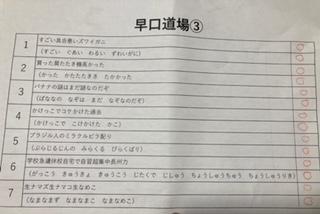 早口道場③
1 すごい具合悪いズワイガニ
(すごい ぐあい わるい ずわいがに)
2 買った肩たたき機高かった
(かった かたたたきき たかかった)
3 バナナの謎はまだ謎なのだぞ
(ばななの なぞは まだ なぞなのだぞ)
4 かけっこでコケかけた過去
(かけっこで こけかけた かこ)
5 ブラジル人のミラクルビラ配り
(ぶらじるじんの みらくる びらくばり)
6 学校急遽休校自宅で自習超集中長州力
(がっこう きゅうきょ きゅうこう じたくで じしゅう ちょうしゅうちゅう ちょうしゅうりき)
7 生ナマズ生ナマコ生なめこ
(なまなまず なまなまこ なまなめこ)